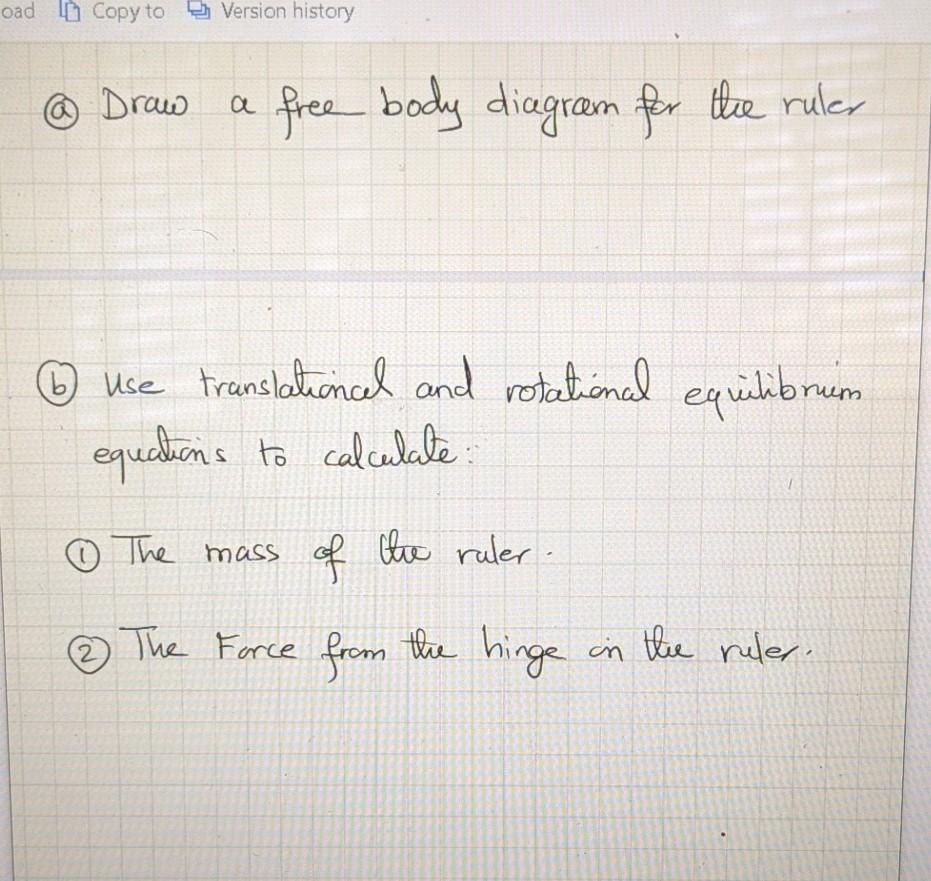 oad Copy to Version history
ⓐ Draw a free body diagram for the ruler
ⓑ Use translational and rotational equilibrium
equations to calculate:
① The mass of the ruler.
② The Force from the hinge on the ruler.